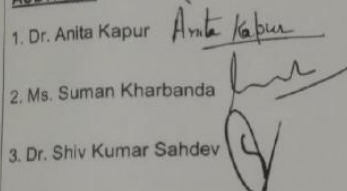 1. Dr. Anita Kapur Anita Kapur
2. Ms. Suman Kharbanda
3. Dr. Shiv Kumar Sahdev